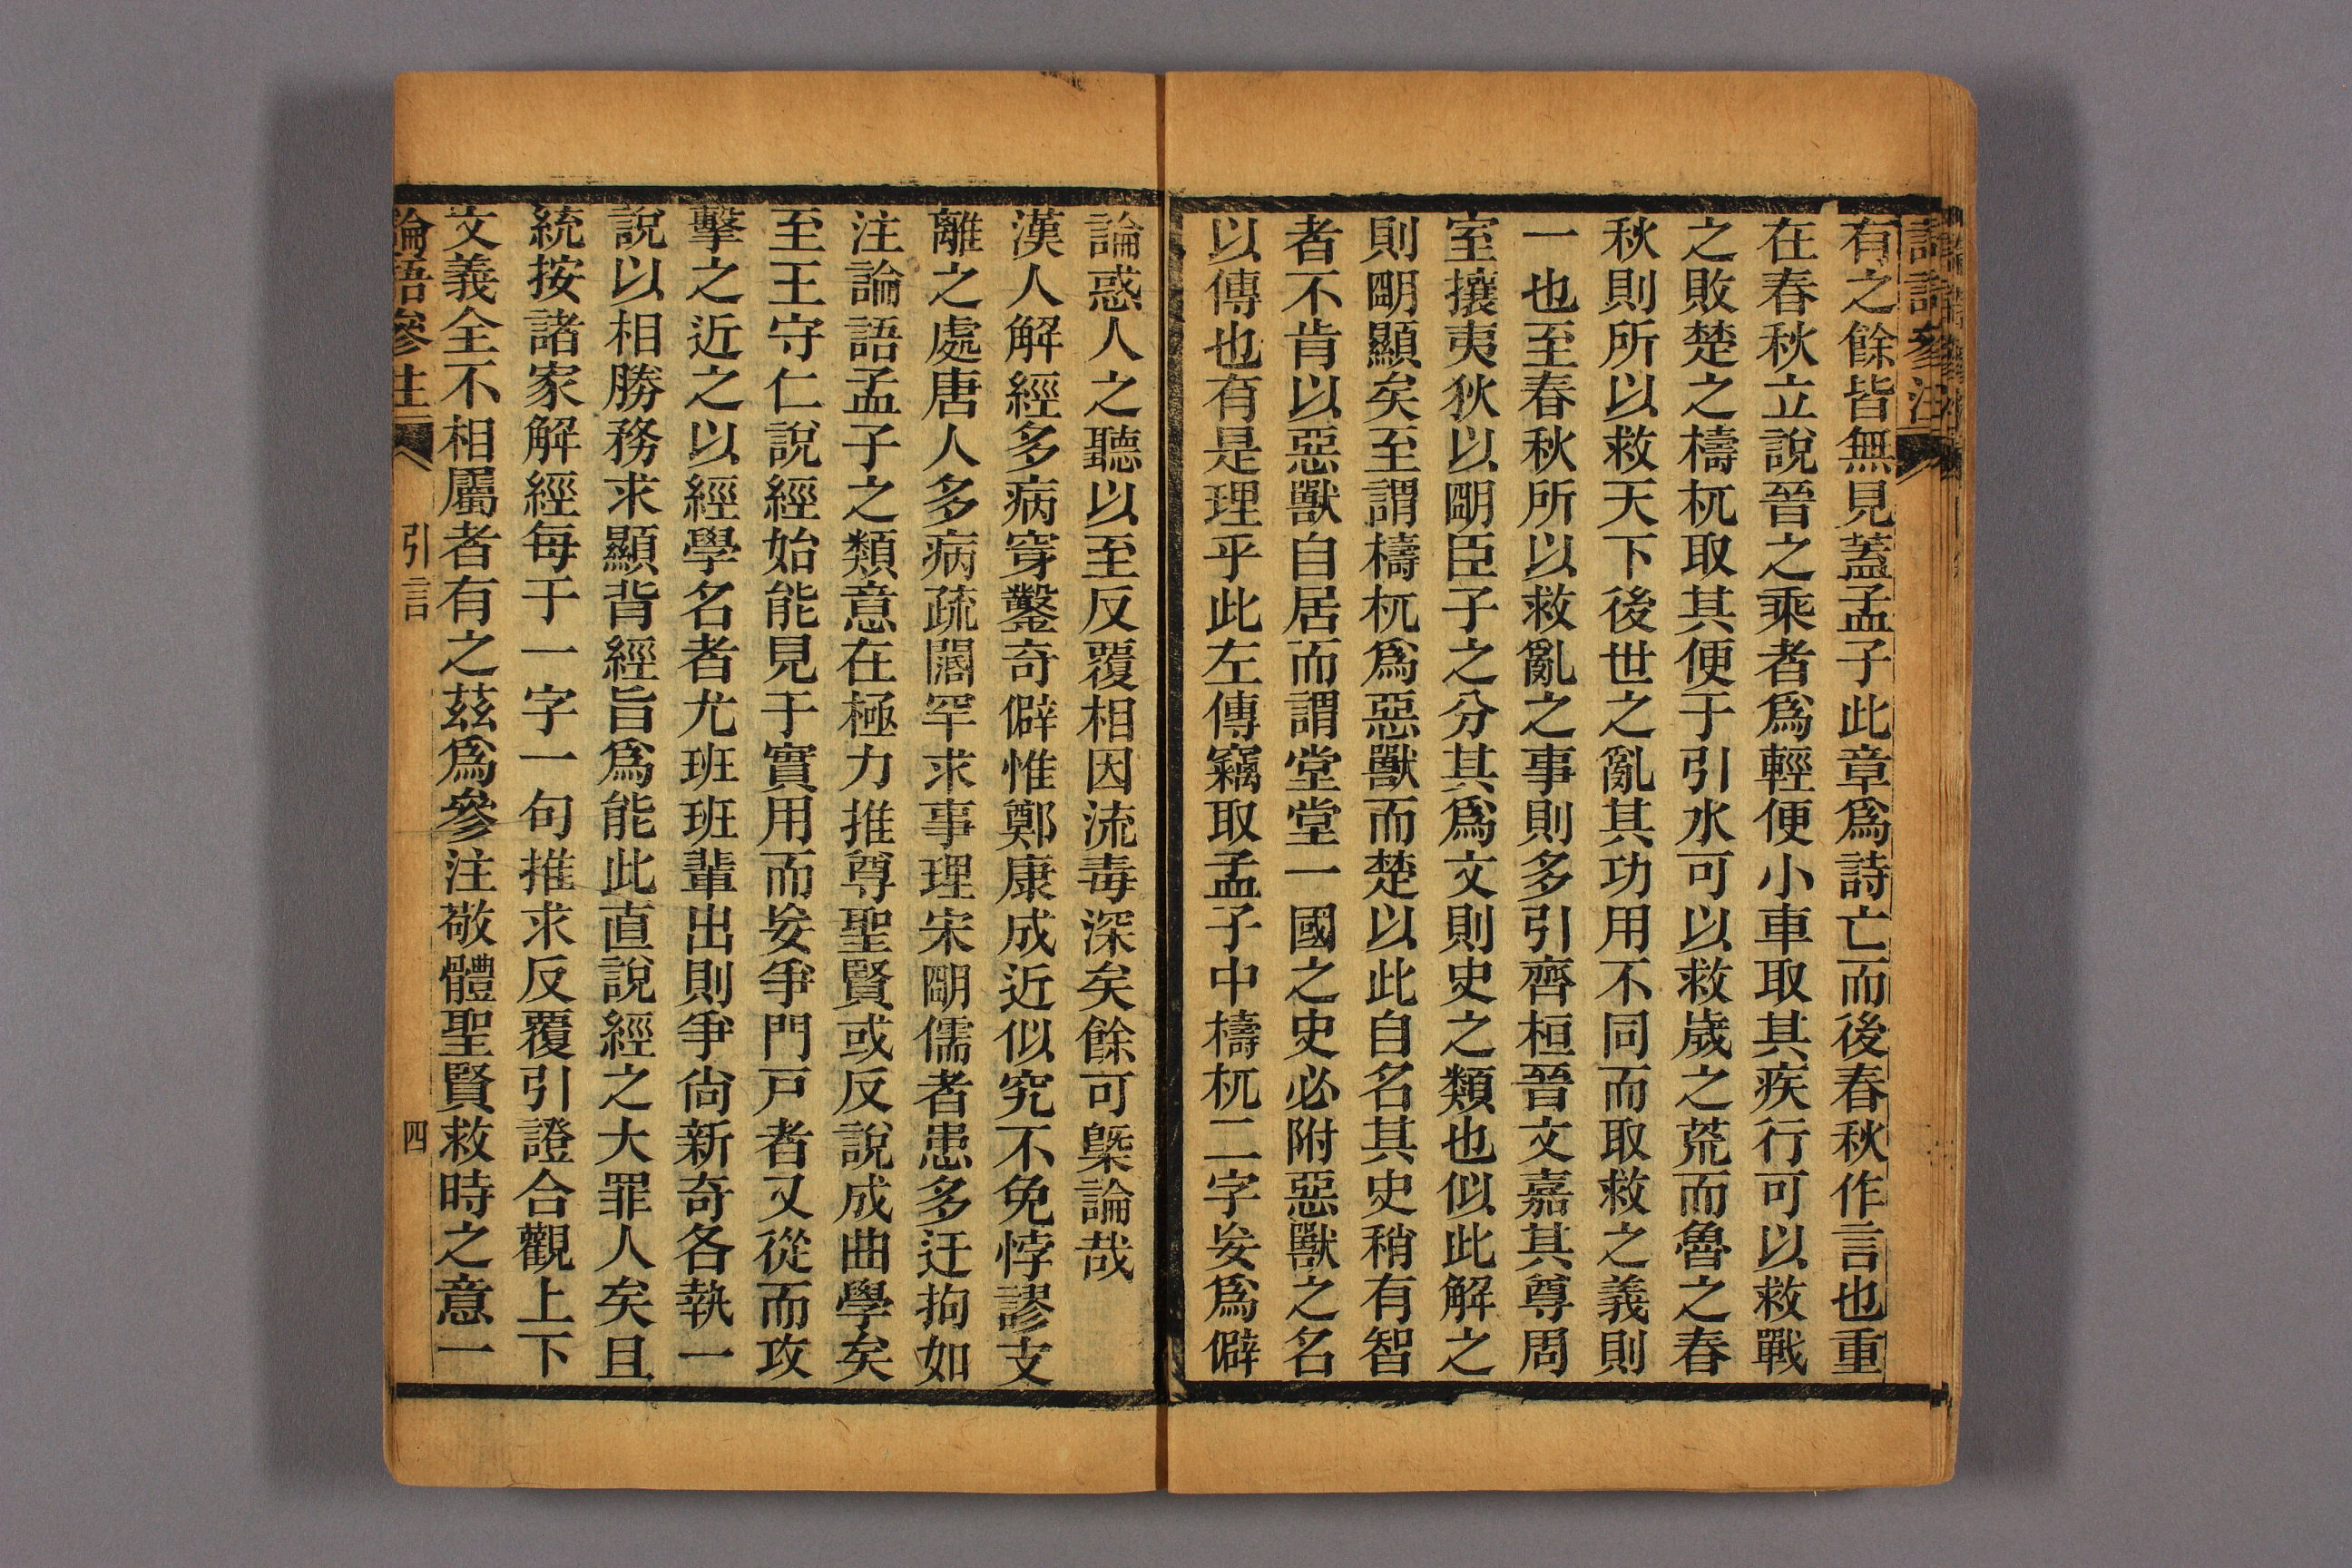 有之餘皆無見蓋孟子此章爲詩亡而後春秋作言也重
在春秋立說晉之乘者爲輕便小車取其疾行可以救戰
之敗楚之檮杌取其便于引水可以救歲之荒而魯之春
秋則所以救天下後世之亂其功用不同而取救之義則
一也至春秋所以救亂之事則多引齊桓晉文嘉其尊周
室攘夷狄以朙臣子之分其爲文則史之類也似此解之
則朙顯矣至謂檮杌爲惡獸而楚以此自名其史稍有智
者不肯以惡獸自居而謂堂堂一國之史必附惡獸之名
以傳也有是理乎此左傳竊取孟子中檮杌二字妄爲僻
論惑人之聽以至反覆相因流毒深矣餘可槩論哉
漢人解經多病穿鑿奇僻惟鄭康成近似究不免悖謬支
離之處唐人多病疏闊罕求事理宋朙儒者患多迂拘如
注論語孟子之類意在極力推尊聖賢或反說成曲學矣
至王守仁說經始能見于實用而妄爭門戸者又從而攻
擊之近之以經學名者尤班班輩出則爭尙新奇各執一
說以相勝務求顯背經旨爲能此直說經之大罪人矣且
統按諸家解經每于一字一句推求反覆引證合觀上下
文義全不相屬者有之茲爲參注敬體聖賢救時之意一
論語參注 引言 四